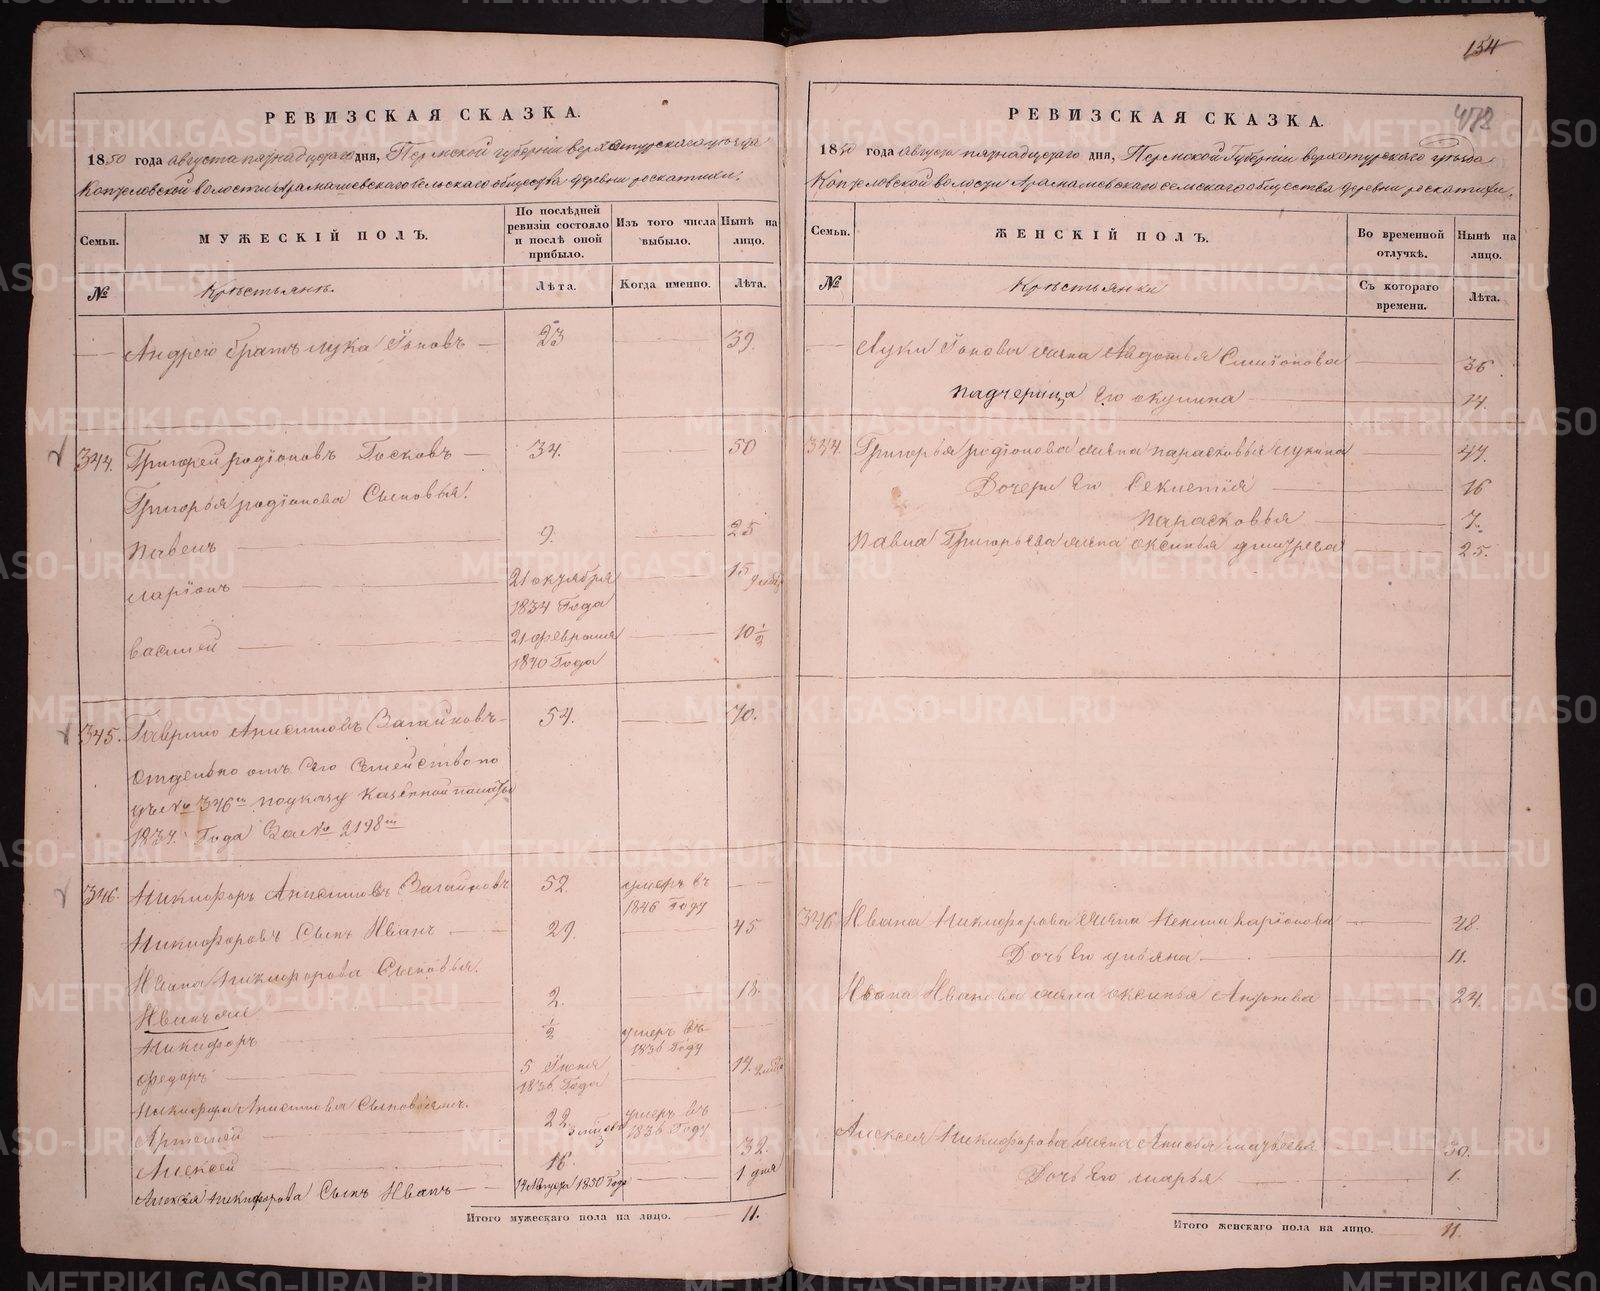 154
478
РЕВИЗСКАЯ СКАЗКА.
1850 года августа пятнадцатого дня, Пермской губернии верхотурского уезда
Коптеловской волости Арамашевского сельского общества деревни роскатихи.
Семьи.
МУЖЕСКІЙ ПОЛЪ.
По послѣдней ревизіи состояло и послѣ оной прибыло.
Изъ того числа выбыло.
Нынѣ на лицо.
№
Крестьяне.
Лѣта.
Когда именно.
Лѣта.
Андрею братъ лука Іоновъ 23 39.
344. Григорей родіоновъ Госковъ 34. 50
Григорья родіонова Сыновья.
павелъ 9. 25
ларіонъ 21 октября 1834 Года 15
василей 21 февраля 1840 Года 10 1/2
345. Гаврило Анисимовъ Вагановъ 54. 70.
отдельно отъ Сего Семейство по
№ 346 поуказу Казенной палаты
1834. Года За № 2198
346. Никифоръ Анисимовъ 52 умеръ въ 1846 Году
Никифоровъ Сынъ Иванъ 29. 45
Ивана Никифорова Сыновья.
Иванъ 2. 18.
Никифоръ 1/2 умеръ въ 1836 Году
Федоръ 5 Іюня 1836 Года 14.
Никифора Анисимова Сыновья
Артемей 22 умеръ въ 1836 Году
Алексей 16. 32.
Алексея Никифорова Сынъ Иванъ 14 Августа 1850 Года 1 дня
Итого мужескаго пола на лицо. 11.
РЕВИЗСКАЯ СКАЗКА.
1850 года августа пятнадцатого дня, Пермской Губернии верхотурского уезда
Коптеловской волости Арамашевского сельского общества деревни роскатихи.
Семьи.
ЖЕНСКІЙ ПОЛЪ.
Во временной отлучкѣ.
Нынѣ на лицо.
№
Крестьянки
Съ котораго времени.
Лѣта.
Луки Іонова жена Авдотья Симіонова 36.
падчерица Его акулина 14.
344. Григорья родіонова жена парасковья лукина 47.
Дочери Его Секлетія 16
парасковья 7.
Павла Григорьева жена оксинья 25.
346 Ивана Никифорова жена 48.
Дочь Его ульяна 11.
Ивана Иванова жена оксинья 24.
Алексея Никифорова жена Анисья 30.
Дочь Его марья 1.
Итого женскаго пола на лицо. 11.
METRIKI.GASO-URAL.RU